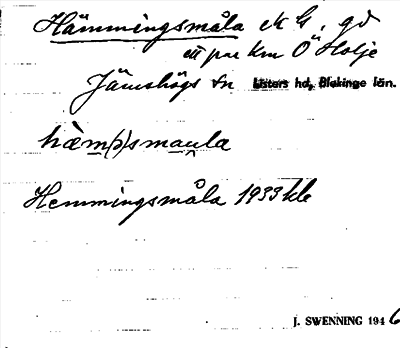 Hämmingsmåla ek G, gd
ett par km Ö Holje
Jämshögs sn Listers hd, Blekinge län.
hæm(ə)smaula
Hemmingsmåla 1933 kle
J. SWENNING 1946